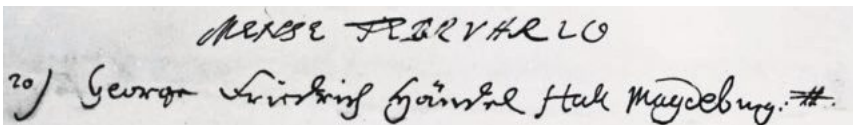 MENSE FEBRVARIO
20) George Friedrich Händel Hall Magdeburg.